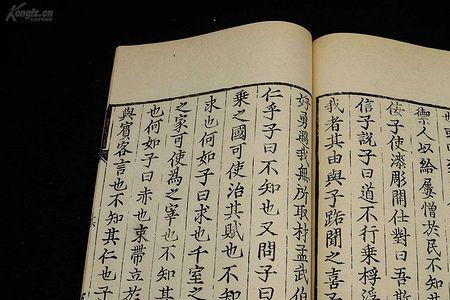 Kongfz.cn
禦人以給屢憎於民不知
佞子使漆彫開仕對曰吾斯
信子說子曰道不行乘桴浮
我者其由與子路聞之喜子
好勇過我無所取材孟武伯
仁乎子曰不知也又問子曰
乘之國可使治其賦也不
求也何如子曰求也千室之
之家可使為之宰也不知其
也何如子曰赤也束帶立於
與賓客言也不知其仁也子